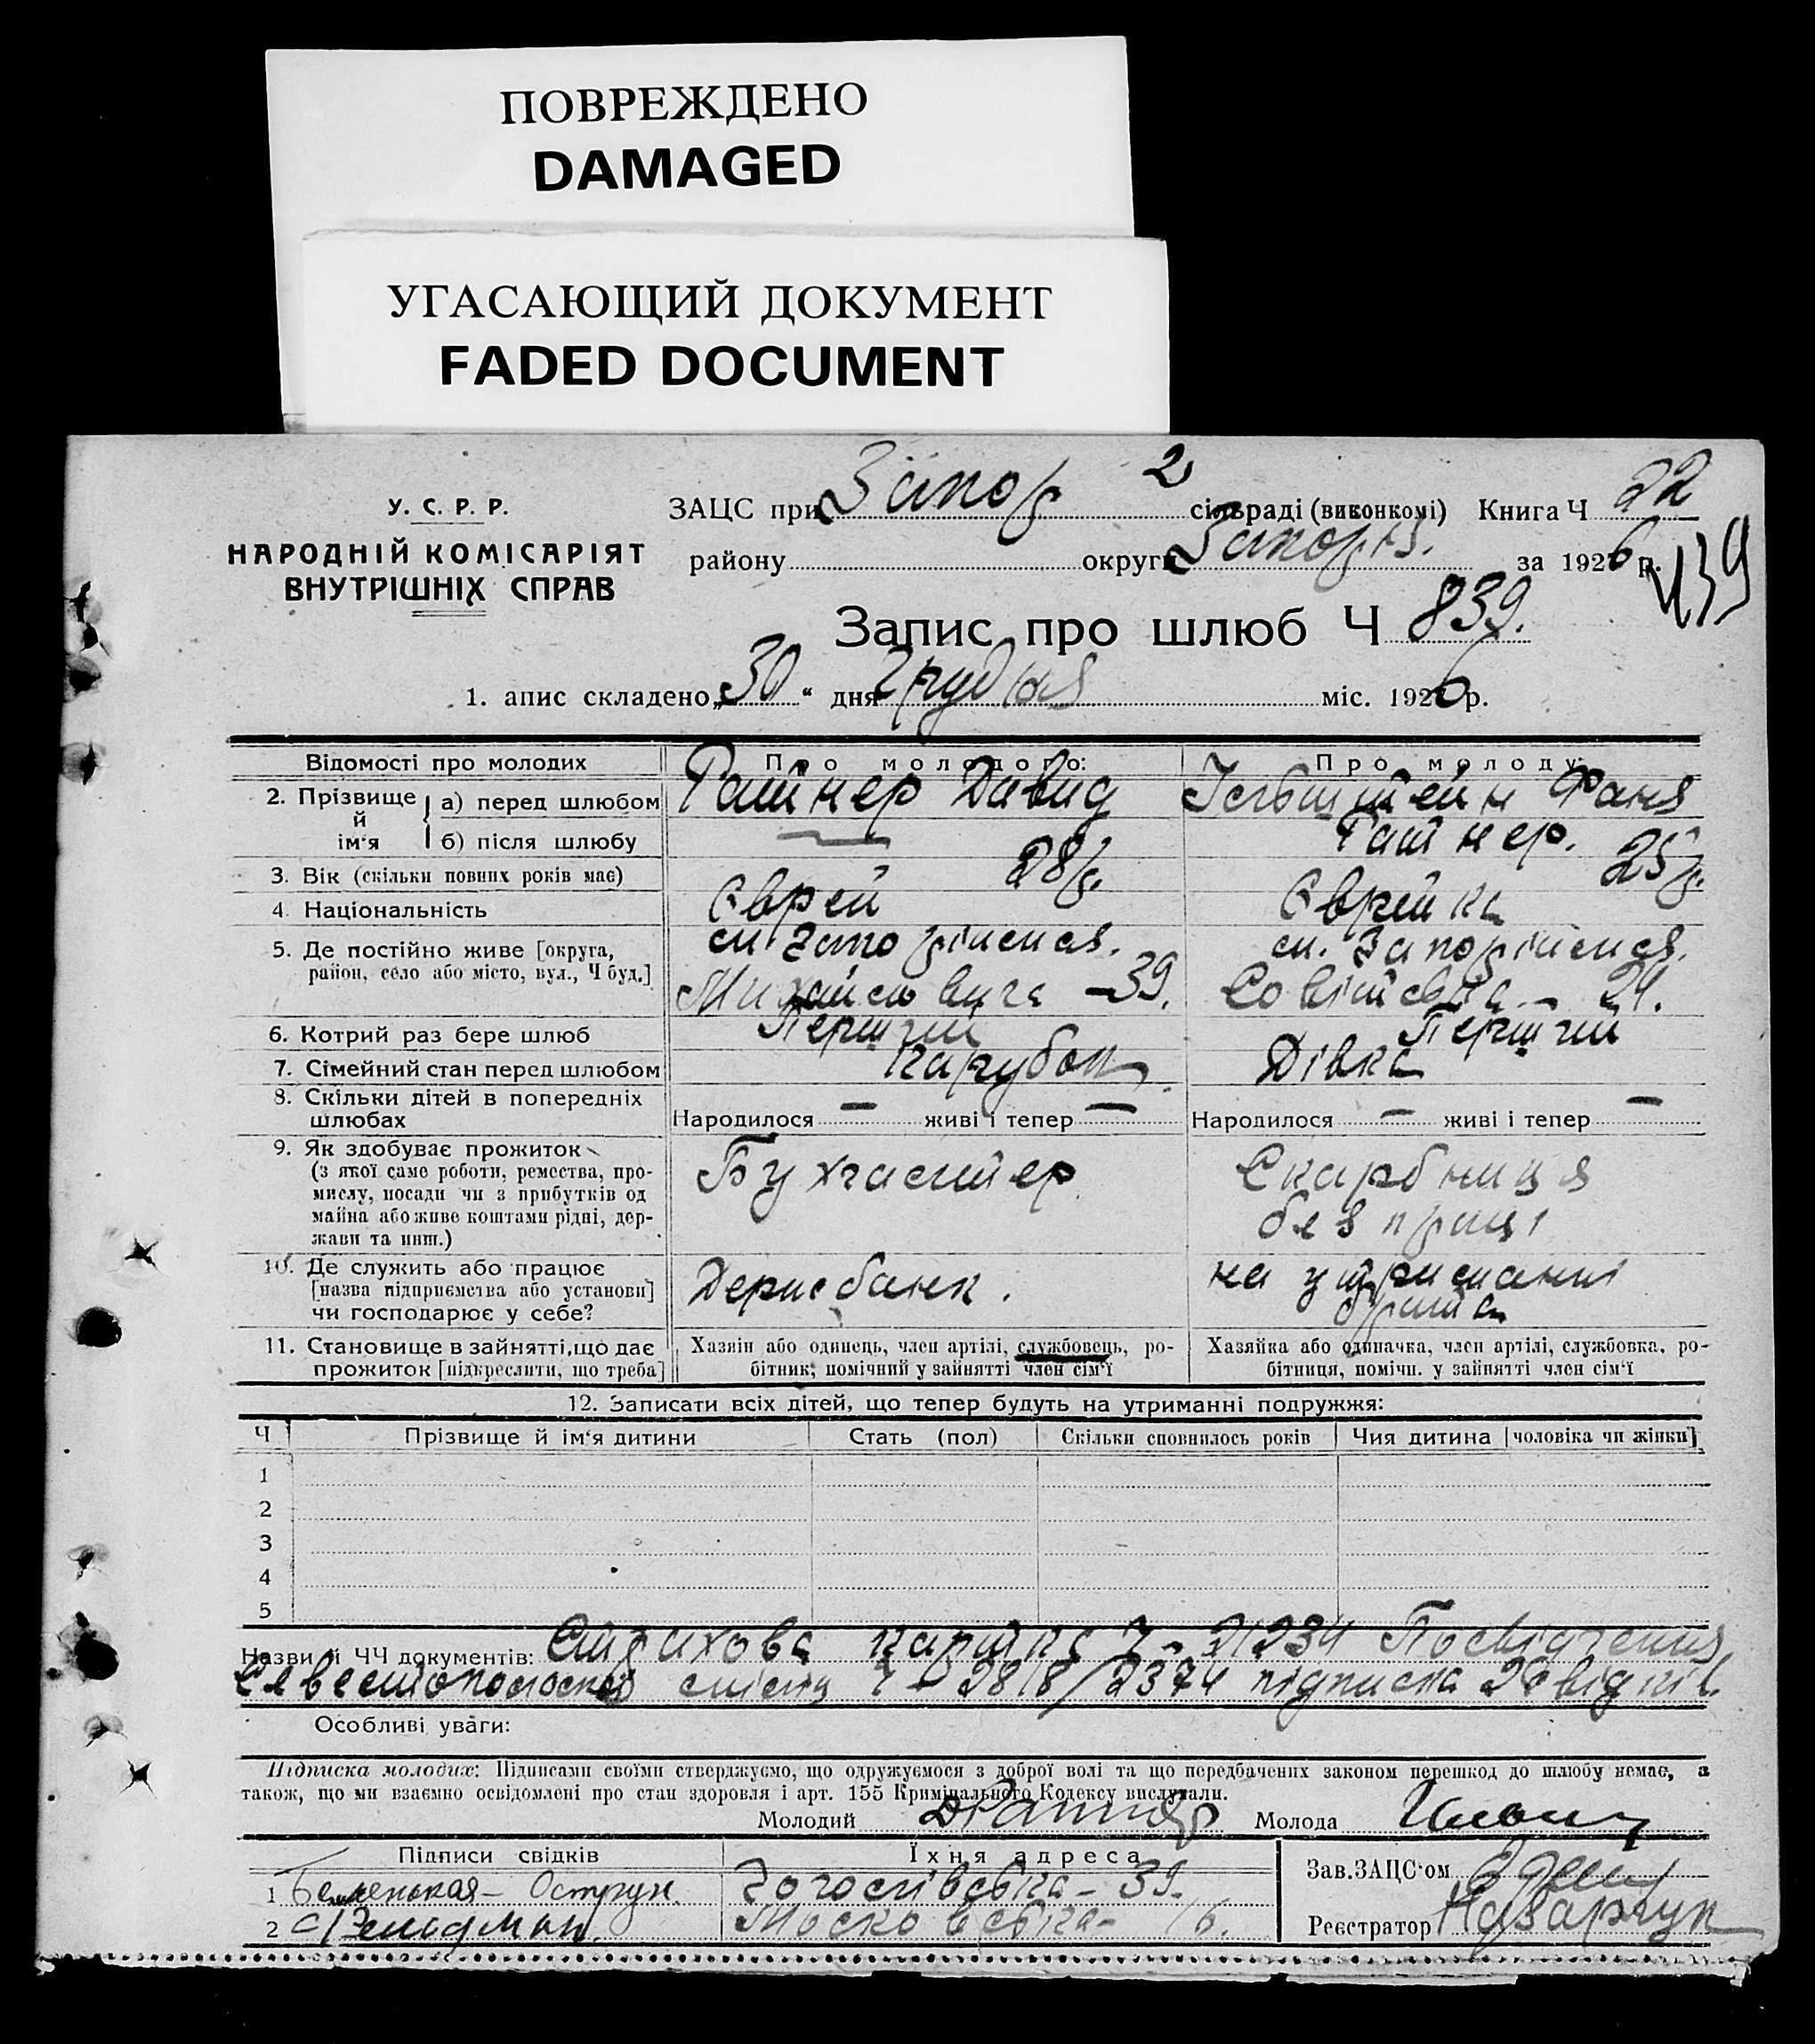 ПОВРЕЖДЕНО
DAMAGED
УГАСАЮЩИЙ ДОКУМЕНТ
FADED DOCUMENT
У. С. Р. Р.
НАРОДНІЙ КОМІСАРІЯТ
ВНУТРІШНІХ СПРАВ
ЗАЦС при Запор 2 сільраді (виконкомі) Книга Ч 22
району округи за 1926 р.
439
Запис про шлюб Ч 839.
1. апис складено „30“ дня Грудня міс. 1926 р.
Відомості про молодих Про молодого: Про молоду:
2. Прізвище й ім'я а) перед шлюбом Давид Фаня
б) після шлюбу
3. Вік (скільки повних років має) 28 р. 25 р.
4. Національність Єврей Єврейка
5. Де постійно живе [округа, м. Запоріжжя. м. Запоріжжя.
район, село або місто, вул., Ч буд.] 39. 24.
6. Котрий раз бере шлюб Перший Перший
7. Сімейний стан перед шлюбом Парубок Дівка
8. Скільки дітей в попередніх
шлюбах Народилося — живі і тепер — Народилося — живі і тепер —
9. Як здобуває прожиток
(з якої саме роботи, ремества, про-
мислу, посади чи з прибутків од
майна або живе коштами рідні, дер-
жави та инш.)
Бухгалтер
Скарбниця
без праці
10. Де служить або працює
[назва підприємства або установи]
чи господарює у себе?
Держбанк.
на утриманні
брата
11. Становище в зайнятті, що дає Хазяін або одинець, член артілі, службовець, ро- Хазяйка або одиначка, член артілі, службовка, ро-
прожиток [підкреслити, що треба] бітник, помічний у зайнятті член сім'ї бітниця, помічн. у зайнятті член сім'ї
12. Записати всіх дітей, що тепер будуть на утриманні подружжя:
Ч Прізвище й ім'я дитини Стать (пол) Скільки сповнилось років Чия дитина [чоловіка чи жінки]
1
2
3
4
5
Назви й ЧЧ документів: Страхова картка Ч- 21234 Посвідчення
Ч - 2818/2374 підписка
Особливі уваги:
Підписка молодих: Підписами своїми стверджуємо, що одружуємося з доброї волі та що передбачених законом перешкод до шлюбу немає, а
також, що ми взаємно освідомлені про стан здоровля і арт. 155 Кримінального Кодексу вислухали.
Молодий Молода
Підписи свідків Їхня адреса
1 39.
2 Фельдман. Московська- 16.
Зав. ЗАЦС'ом
Реєстратор Назарчук